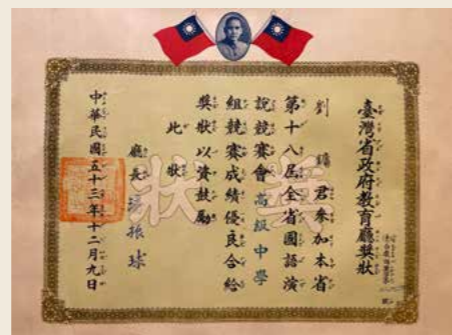 臺灣省政府教育廳獎狀
劉 君參加本省
第十八屆全省國語演
說競賽會高級中學
組競賽成績優良合給
獎狀以資鼓勵
此狀
廳長 振球
中華民國五十三年十二月九日
獎狀